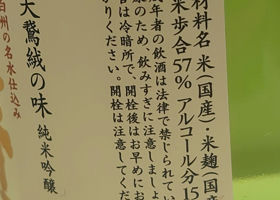 材料名 米(国産)・米麹(国
米歩合57% アルコール分15
年者の飲酒は法律で禁じられてい
康のため、飲みすぎに注意しましょ
管は冷暗所で、開栓後はお早めにお
がりください。開栓は注意してくだ
大鵞絨の味 純米吟醸
白州の名水仕込み